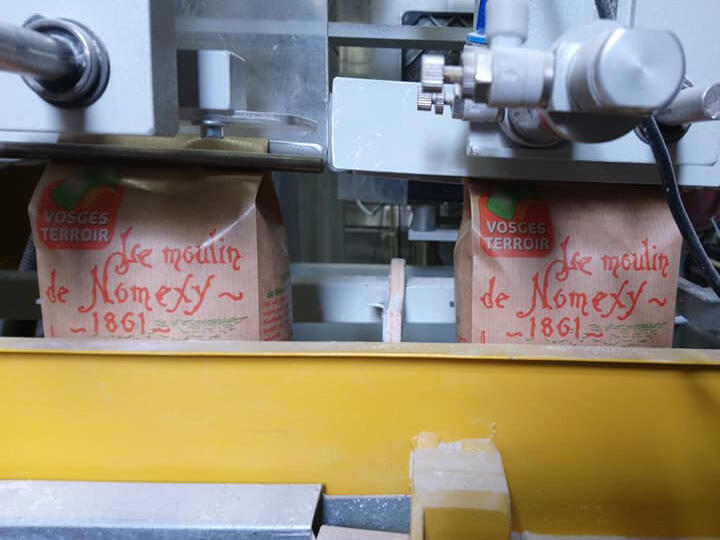 VOSGES
TERROIR
Le moulin
de Nomexy ~
~ 1861 ~
VOSGES
TERROIR
Le moulin
de Nomexy ~
~ 1861 ~